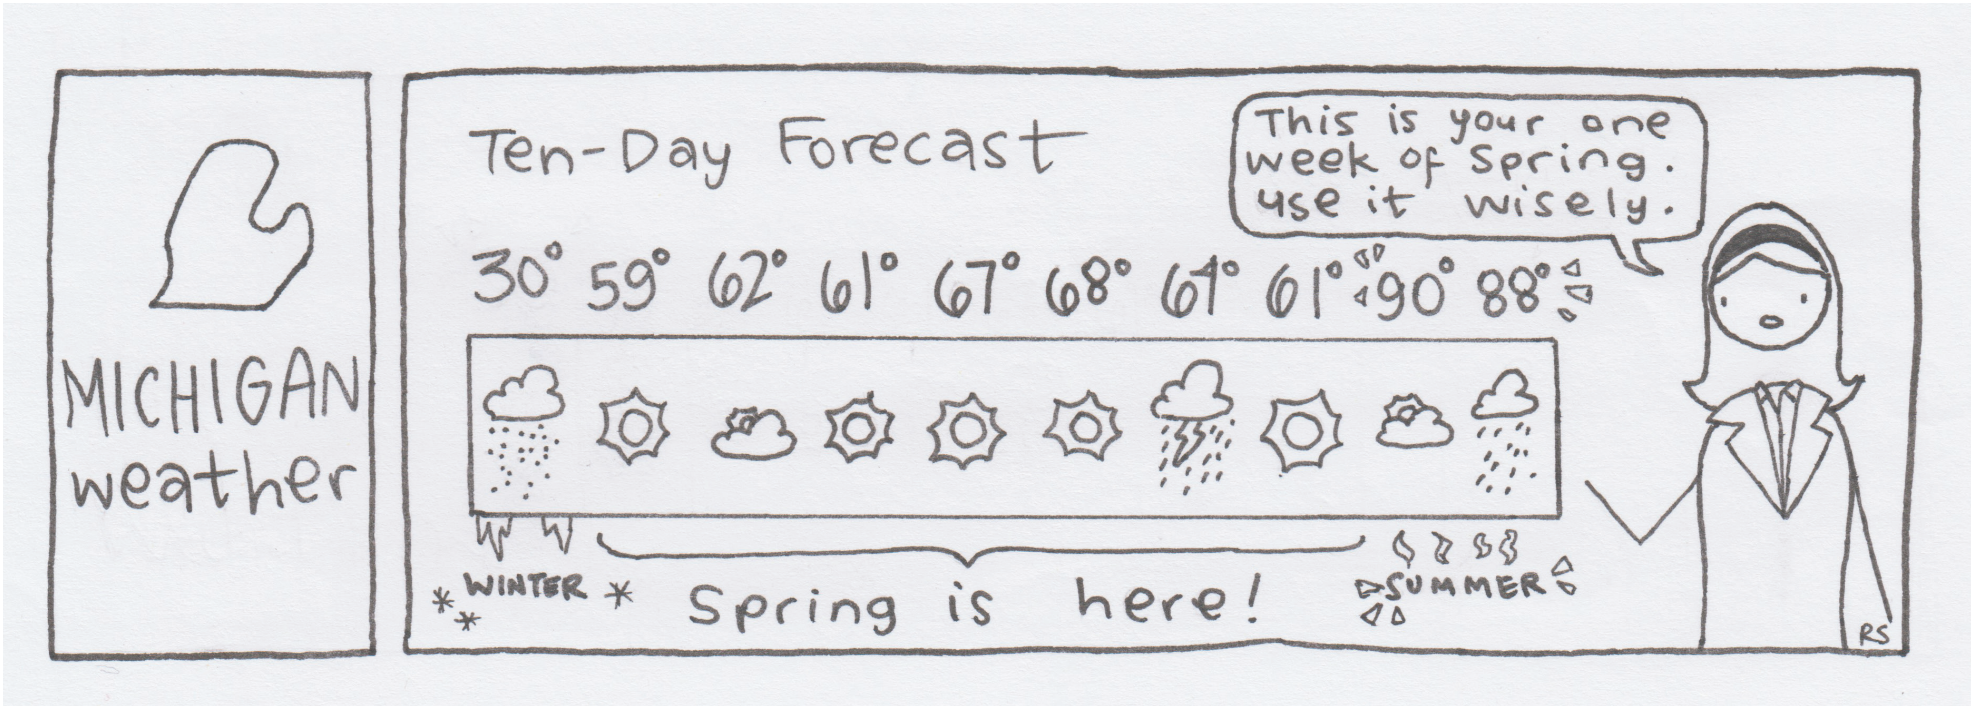 MICHIGAN
weather
Ten-Day Forecast
This is your one
week of Spring.
use it wisely.
30° 59° 62° 61° 67° 68° 64° 61° 90° 88°
WINTER
Spring is here!
SUMMER
RS